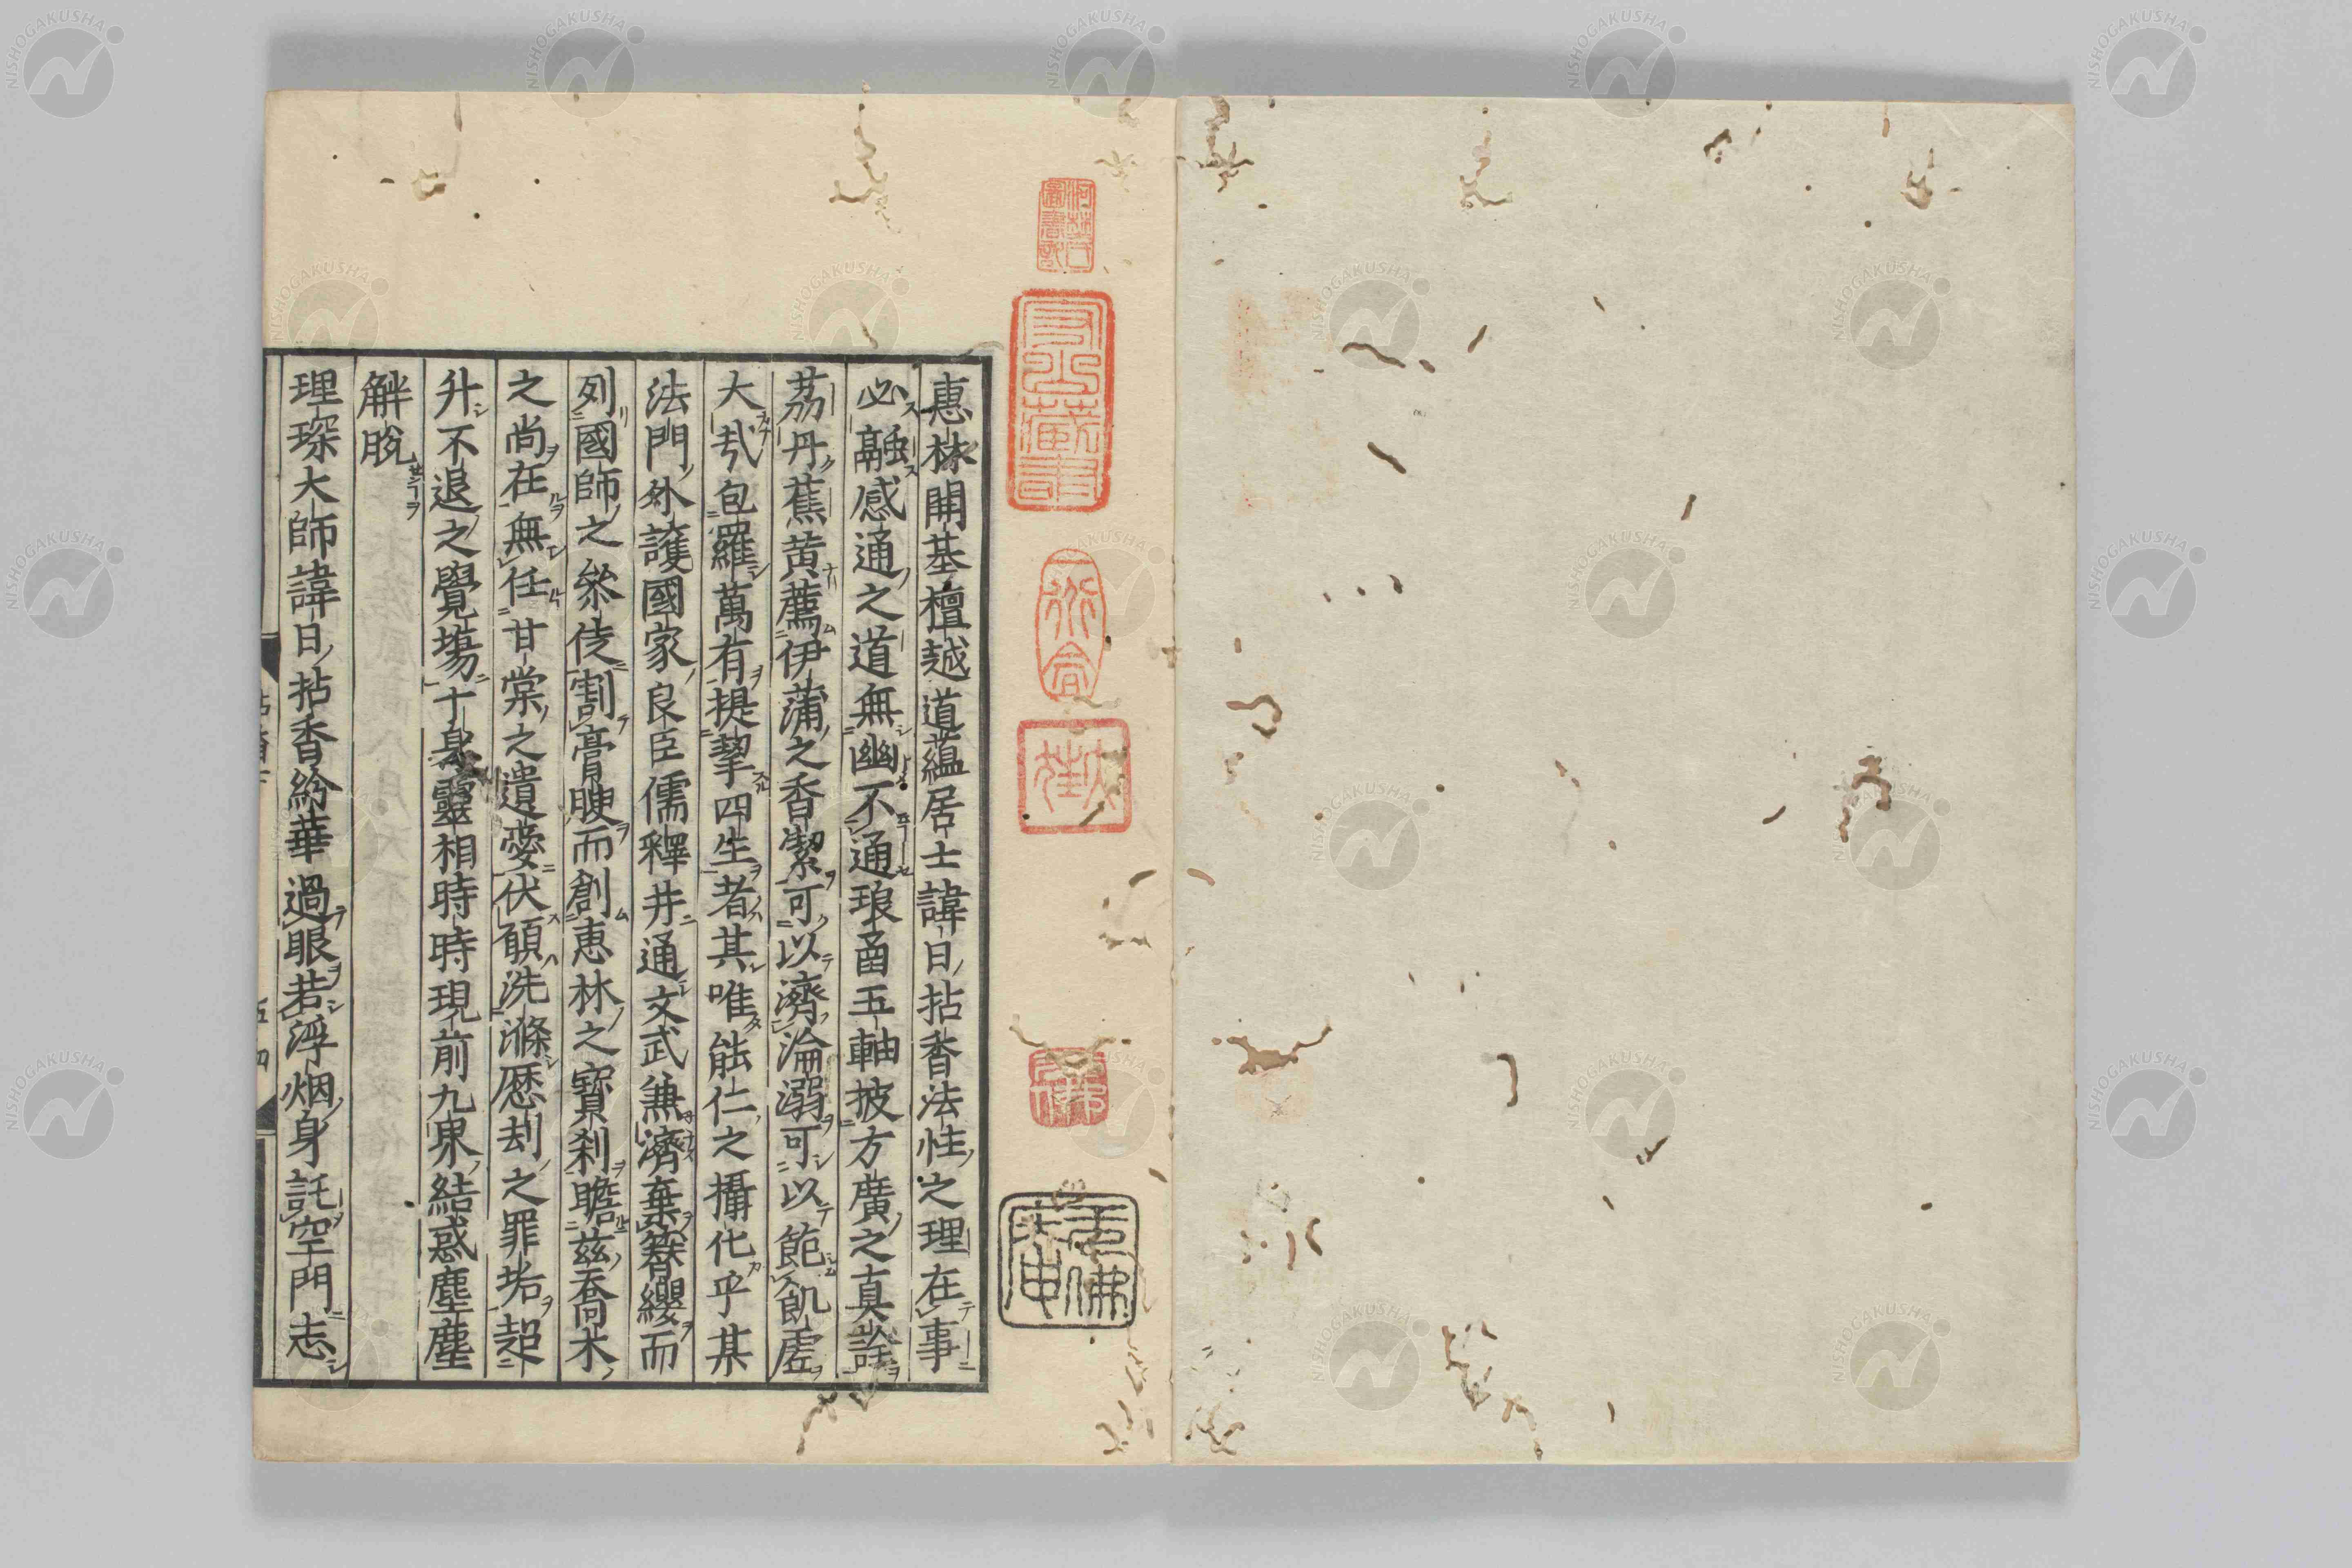 惠林開基檀越道蘊居士諱日拈香法性之理在事
必融感通之道無幽不通琅凾玉軸披方廣之真詮
茘丹蕉黄薦伊蒲之香潔可以濟淪溺可以飽飢虚
大哉包羅萬有提挈四生者其唯能仁之攝化乎某
法門外護國家良臣儒釋并通文武兼濟棄簪纓而
列國師之叅徒割膏腴而創惠林之寳刹瞻兹喬木
之尚在無任甘棠之遺愛伏願洗滌歴劫之罪垢超
升不退之覺場十身靈相時時現前九泉結惑塵塵
解脱
理琛大師諱日拈香紛華過眼若浮烟身託空門志